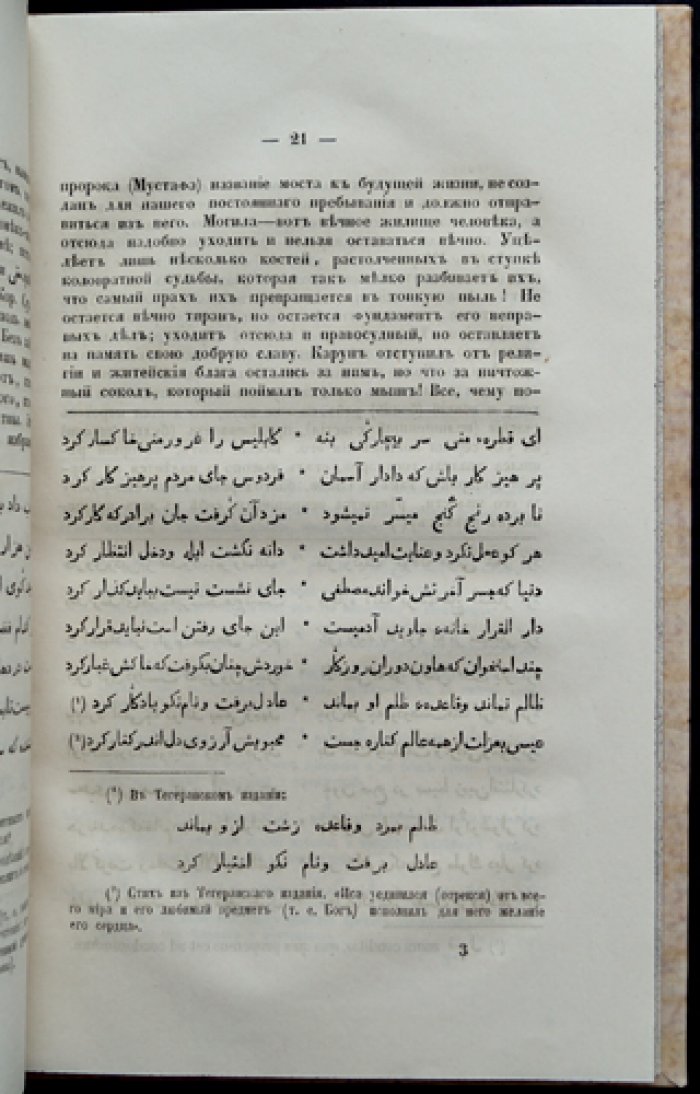 — 21 —
пророка (Мустафа) названіе моста къ будущей жизни, не соз-
данъ для нашего постояннаго пребыванія и должно отпра-
виться изъ него. Могила—вотъ вѣчное жилище человѣка, а
отсюда надобно уходить и нельзя оставаться вѣчно. Уцѣ-
лѣетъ лишь нѣсколько костей, растолченныхъ въ ступкѣ
коловратной судьбы, которая такъ мѣлко разбиваетъ ихъ,
что самый прахъ ихъ превращается въ тонкую пыль! Не
остается вѣчно тиранъ, но остается фундаментъ его непра-
выхъ дѣлъ; уходитъ отсюда и правосудный, но оставляетъ
на память свою добрую славу. Карунъ отступилъ отъ рели-
гіи и житейскія блага остались за нимъ, но что за ничтож-
ный соколъ, который поймалъ только мышь! Все, чему по-
ای قطره، منی سر بیچارکی بنه * کابلیس را غرور منی خاکسار کرد
پرهیز کار باش که دادار آسمان * فردوس جای مردم پرهیز کار کرد
نابرده رنج گنج میسّر نمیشود * مزد آن گرفت جان برادر که کار کرد
هر کو عمل نکرد و عنایت امید داشت * دانه نکشت ابله و دخل انتظار کرد
دنیا که جسر آخرتش خواند مصطفی * جای نشست نیست بباید کذار کرد
دار القرار خانه جاوید آدمیست * این جای رفتن است نباید قرار کرد
چند استخوان که هاون دوران روزکار * خوردش چنان بکوفت که خاکش غبار کرد
ظالم نماند وقاعده ظلم او بماند * عادل برفت ونام نکو یادکار کرد (¹)
عیسی بعزلت از همه عالم کناره جست * محبوبش آرزوی دل اندر کنار کرد (²)
(¹) Въ Тегеранскомъ изданіи:
ظالم بمرد وقاعده زشت ازو بماند
عادل برفت ونام نکو اختیار کرد
(²) Стихъ изъ Тегеранскаго изданія. «Иса уединился (отрекся) отъ все-
го міра и его любимый предметъ (т. е. Богъ) исполнилъ для него желаніе
его сердца».
3